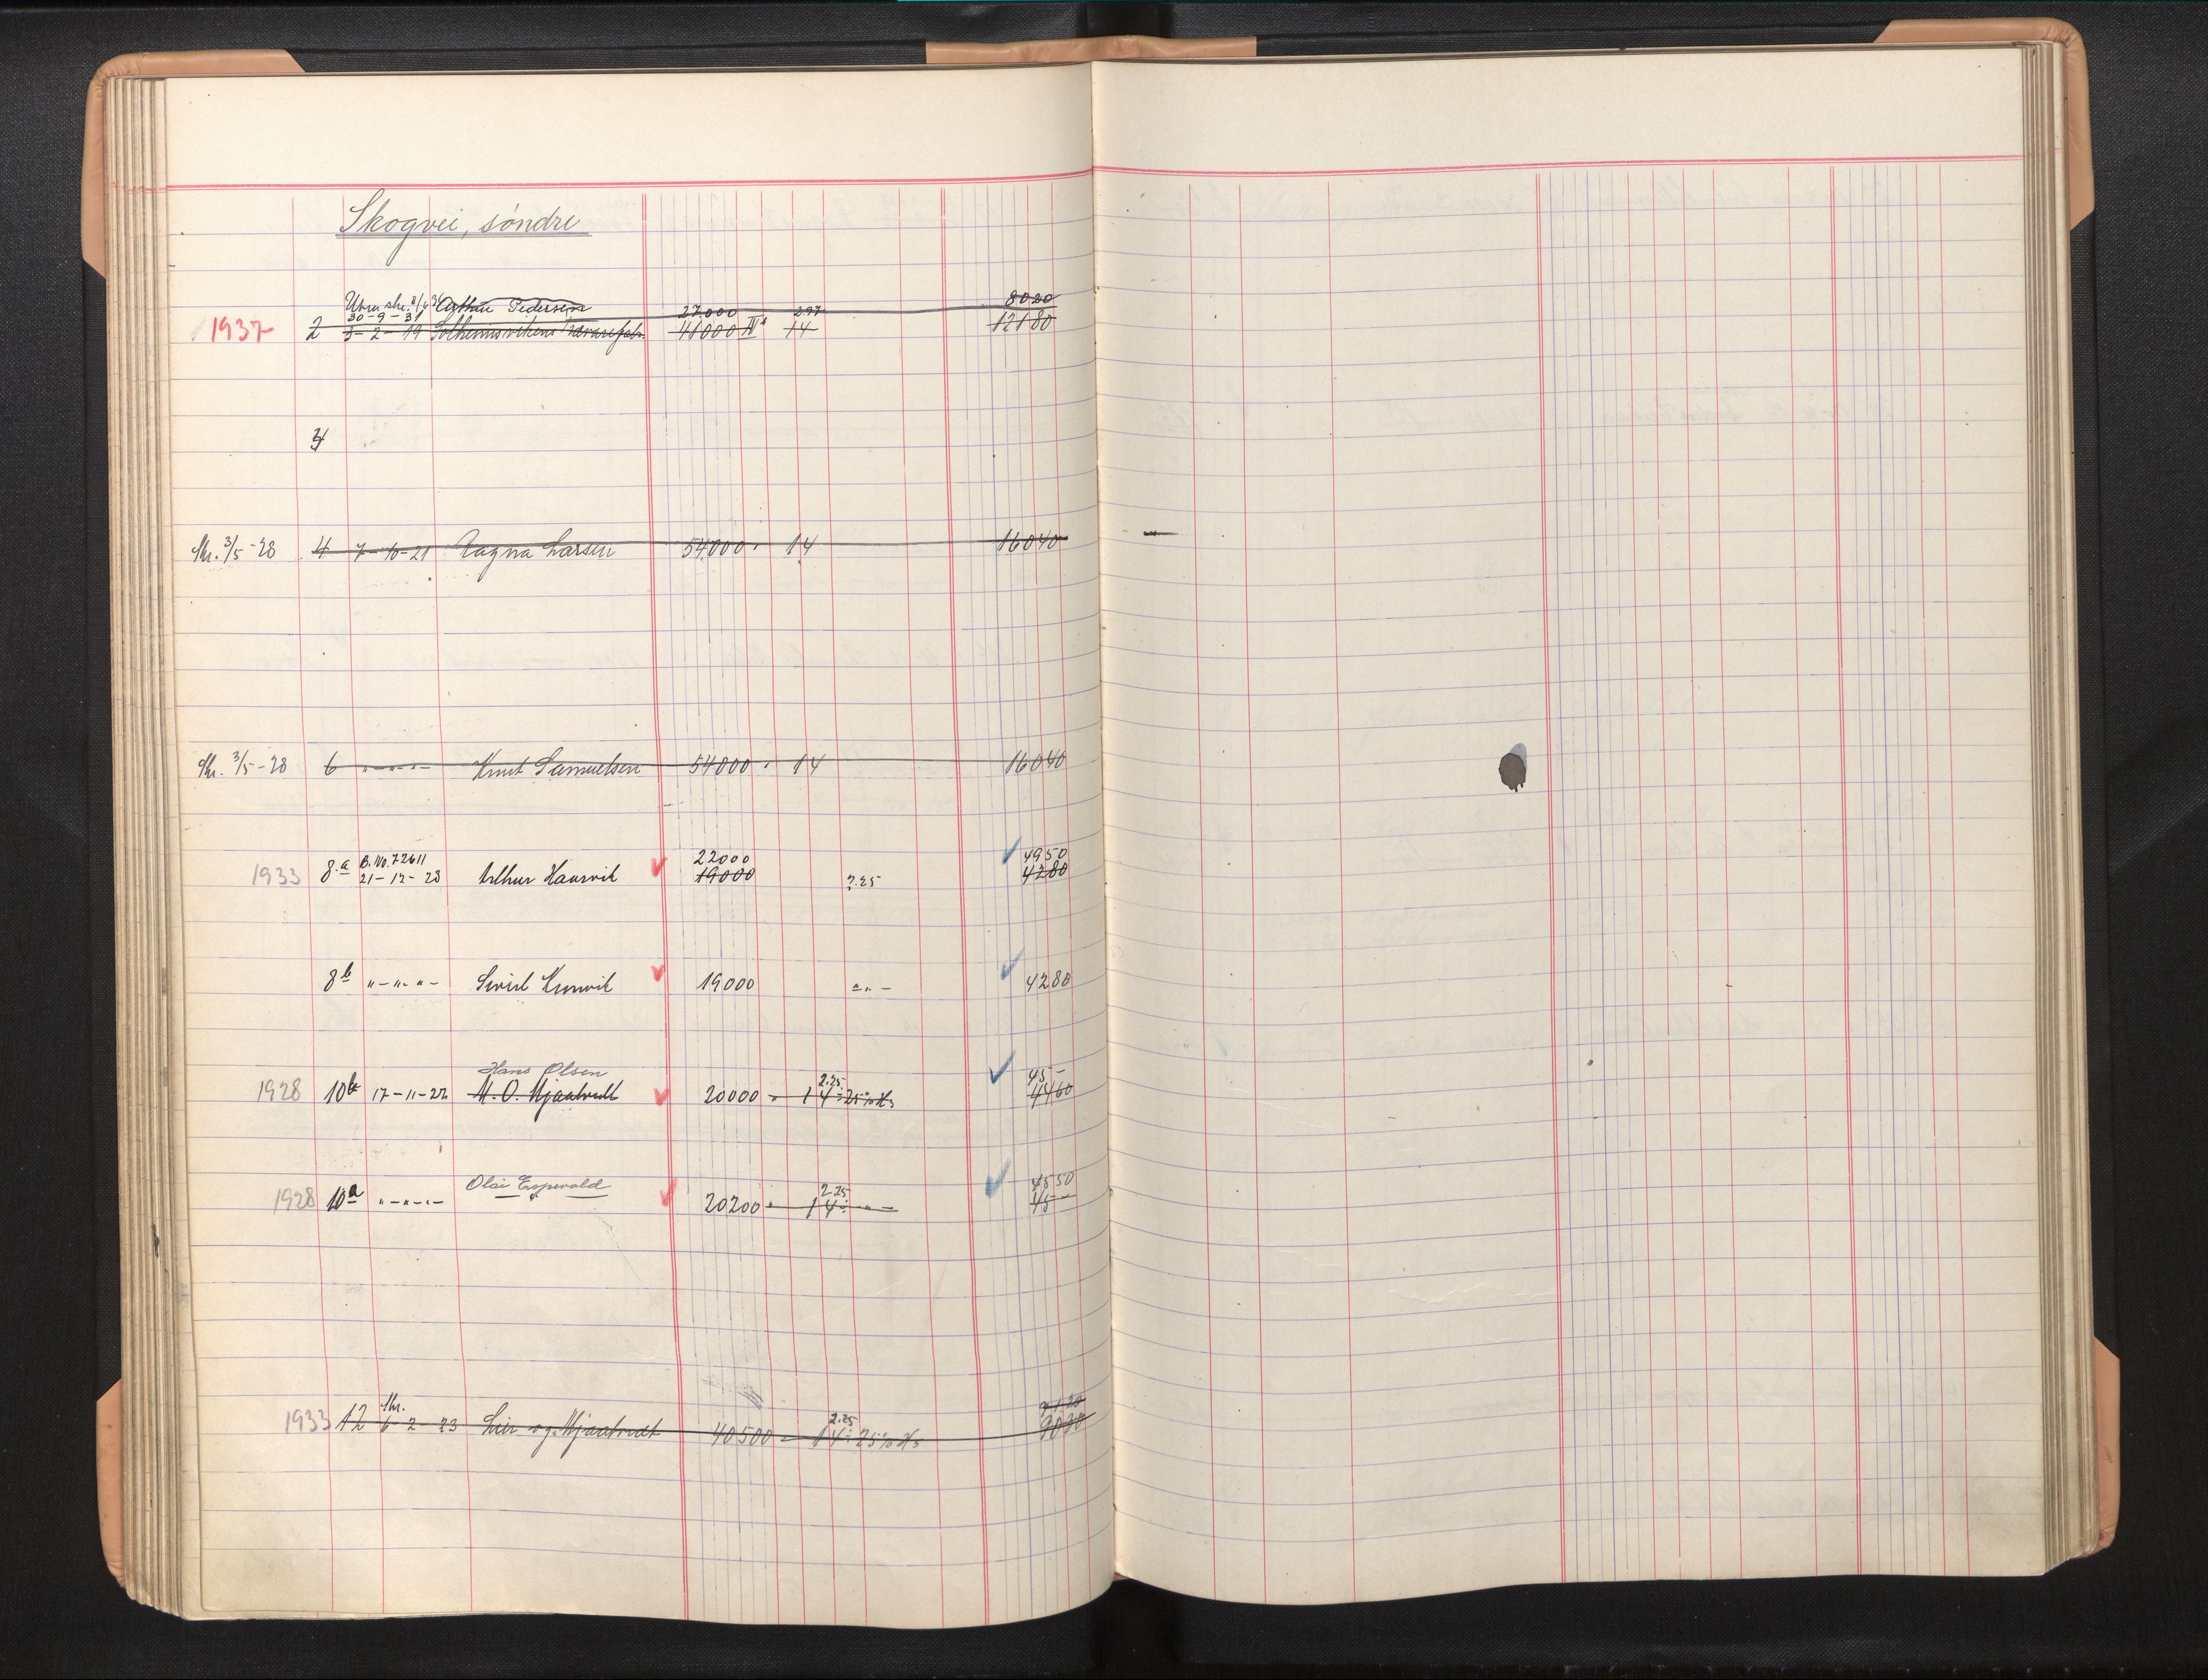 Skogvei, søndre
Agthur Pedersen 27000 297 8020
30-9-31
1937 2 3-2-19 Solheimsvikens 41000 IV 14 12180
4
Skr. 3/5-28 4 7-10-21 Ragna Larsen 54000 " 14 16040
Skr. 3/5-28 6 "-"-"- Knut Samuelsen 54000 " 14 16040
B. No. 72611 22000 4950
1933 8a 21-12-28 Arthur Haurvik 19000 2.25 4280
8b "-"-"- Sivert Kunvik 19000 "-"- 4280
Hans Olsen 2.25 45-
1928 10b 17-11-22 M. O. Mjaatvedt 20000 " 14 ÷ 25% Ks 4460
Olai Espevold 2.25 4550
1928 10a "-"-"- 20200 " 14 ÷ "- 45-
Skr. 2.25 9120
1933 12 6-2-23 Lier og Mjaatvedt 40500 " 14 ÷ 25% Ks 9030